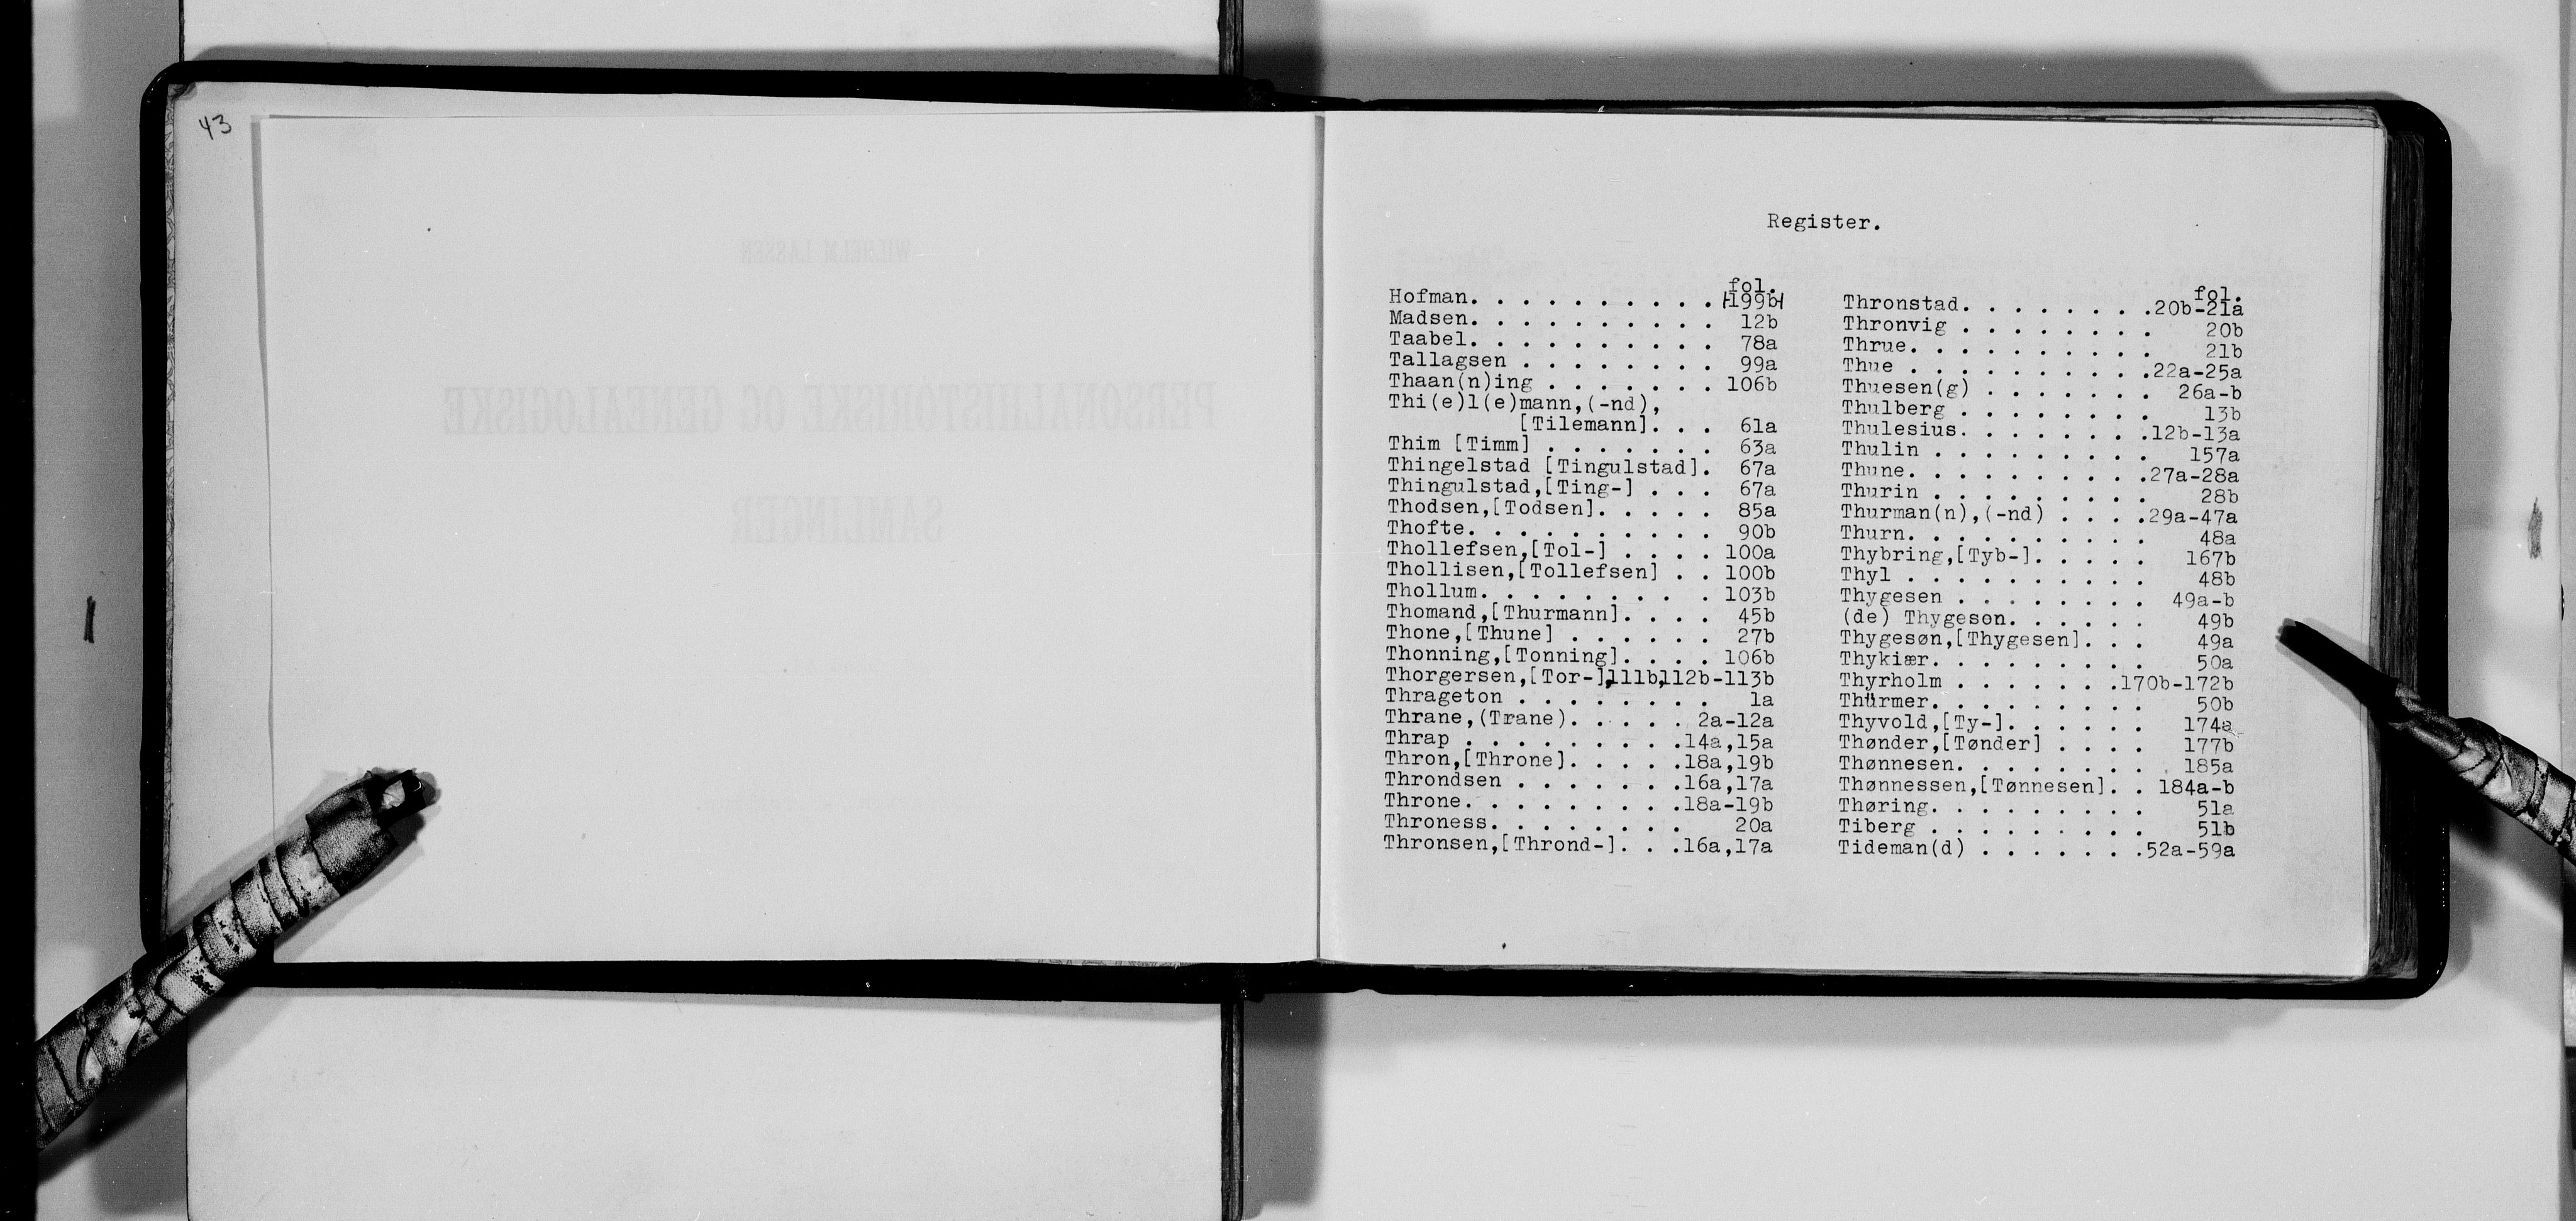 43
WILHELM LASSEN
PERSONALHISTORISKE OG GENEALOGISKE
SAMLINGER
Register.
fol.
Hofman. . . . . . . . . . H199bH
Madsen. . . . . . . . . . 12b
Taabel. . . . . . . . . . 78a
Tallagsen . . . . . . . . 99a
Thaan(n)ing . . . . . . . 106b
Thi(e)l(e)mann,(-nd),
[Tilemann]. . . 61a
Thim [Timm] . . . . . . . 63a
Thingelstad [Tingulstad]. 67a
Thingulstad,[Ting-] . . . 67a
Thodsen,[Todsen]. . . . . 85a
Thofte. . . . . . . . . . 90b
Thollefsen,[Tol-] . . . . 100a
Thollisen,[Tollefsen] . . 100b
Thollum. . . . . . . . . 103b
Thomand,[Thurmann]. . . . 45b
Thone,[Thune] . . . . . . 27b
Thonning,[Tonning]. . . . 106b
Thorgersen,[Tor-],111b,112b-113b
Thrageton . . . . . . . . 1a
Thrane,(Trane). . . . . 2a-12a
Thrap . . . . . . . . .14a,15a
Thron,[Throne]. . . . .18a,19b
Throndsen . . . . . . .16a,17a
Throne. . . . . . . . .18a-19b
Throness. . . . . . . . 20a
Thronsen,[Thrond-]. . .16a,17a
fol.
Thronstad. . . . . . . .20b-21a
Thronvig . . . . . . . . 20b
Thrue. . . . . . . . . . 21b
Thue . . . . . . . . . .22a-25a
Thuesen(g) . . . . . . . 26a-b
Thulberg . . . . . . . . 13b
Thulesius. . . . . . . .12b-13a
Thulin . . . . . . . . . 157a
Thune. . . . . . . . . .27a-28a
Thurin . . . . . . . . . 28b
Thurman(n),(-nd) . . . .29a-47a
Thurn. . . . . . . . . . 48a
Thybring,[Tyb-]. . . . . 167b
Thyl . . . . . . . . . . 48b
Thygesen . . . . . . . . 49a-b
(de) Thygeson. . . . . . 49b
Thygesøn,[Thygesen]. . . 49a
Thykiær. . . . . . . . . 50a
Thyrholm . . . . . . .170b-172b
Thürmer. . . . . . . . . 50b
Thyvold,[Ty-]. . . . . . 174a
Thønder,[Tønder] . . . . 177b
Thønnesen. . . . . . . . 185a
Thønnessen,[Tønnesen]. . 184a-b
Thøring. . . . . . . . . 51a
Tiberg . . . . . . . . . 51b
Tideman(d) . . . . . . .52a-59a